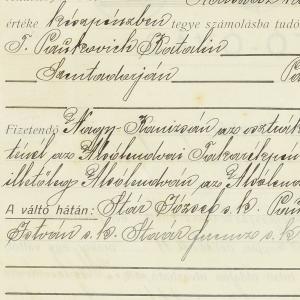 értéke készpénzben tegye számolásba tudó
T. Paukovich Katalin
Szentadorján
Fizetendő Nagy-Kanizsán az osztrák
tézél az Alsólendvai Takarékpén
illetőleg Alsólendván az Alsólend
A váltó hátán: Stár József s. k. Pau
István s. k. Staár Ferencz s. k.